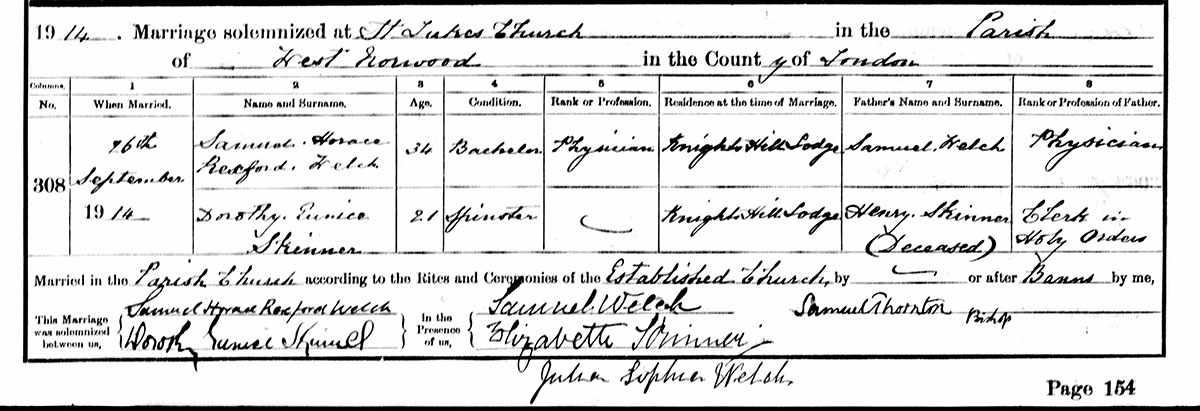 1914. Marriage solemnized at St Lukes Church in the Parish
of West Norwood in the County of London
Columns. 1 2 3 4 5 6 7 8
No. When Married. Name and Surname. Age. Condition. Rank or Profession. Residence at the time of Marriage. Father's Name and Surname. Rank or Profession of Father.
26th Samuel Horace 34 Bachelor Physician Knights Hill Lodge Samuel Welch Physician
308 September Rexford Welch
1914 Dorothy Eunice 21 Spinster Knights Hill Lodge Henry Skinner Clerk in
Skinner (Deceased) Holy Orders
Married in the Parish Church according to the Rites and Ceremonies of the Established Church, by — or after Banns by me,
This Marriage was solemnized between us, Samuel Horace Rexford Welch In the Presence of us, Samuel Welch Samuel Thornton Bishop
Dorothy Eunice Skinner Elizabeth Skinner
Julia Sophia Welch
Page 154